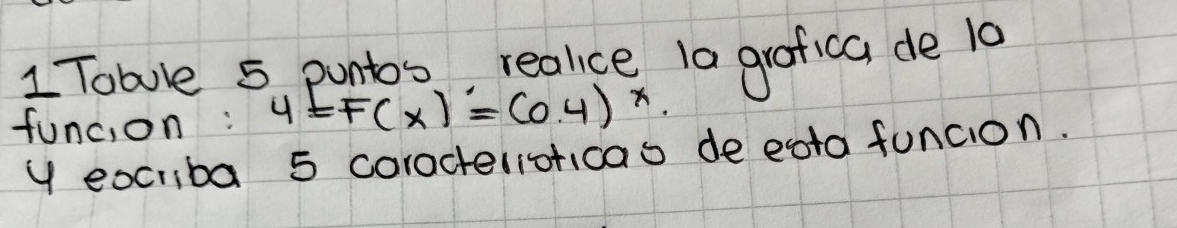 1 Tabule 5 puntos, realice la grafica de la
función : y = F(x) = (0.4)ˣ.
y escriba 5 caracteristicas de esta funcion.